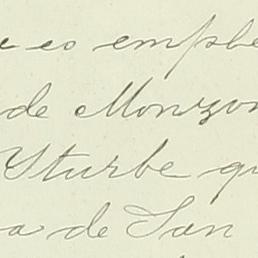 e es emple
de Monzon
Yturbe qu
a de San